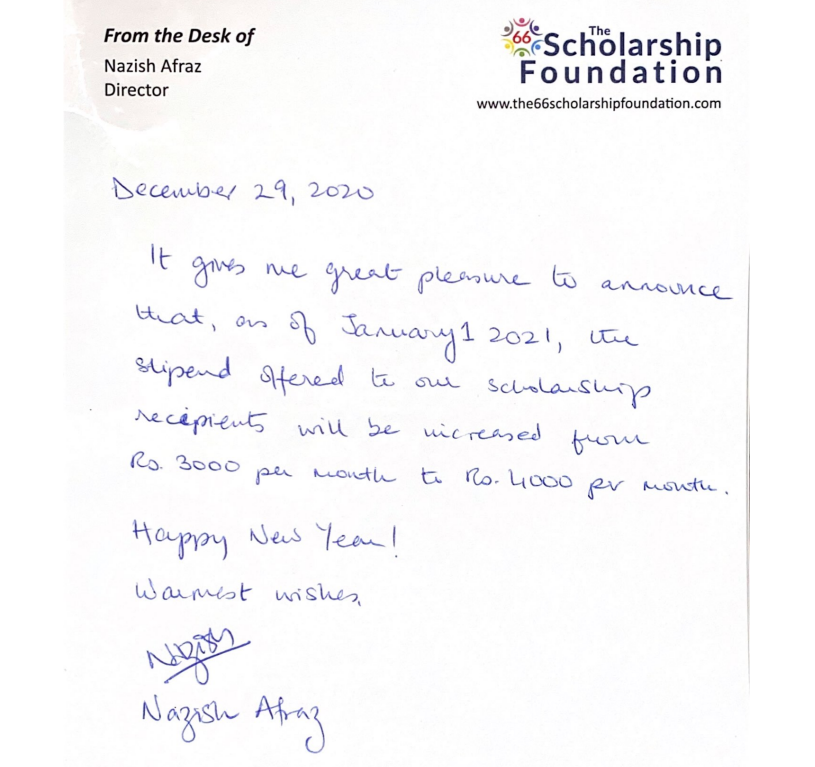 From the Desk of
Nazish Afraz
Director
The
66 Scholarship
Foundation
www.the66scholarshipfoundation.com
December 29, 2020
It gives me great pleasure to announce
that, as of January 1 2021, the
stipend offered to our scholarship
recipients will be increased from
Rs. 3000 per month to Rs. 4000 per month.
Happy New Year!
Warmest wishes,
Nazish
Nazish Afraz